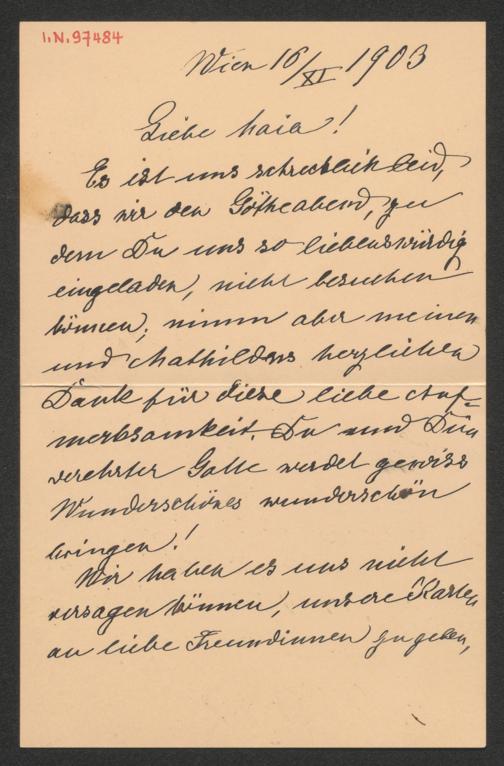 I.N. 97484
Wien 16/XI 1903
Liebe Maia!
Es ist uns schrecklich leid,
dass wir den Götheabend, zu
dem Du uns so liebenswürdig
eingeladen, nicht besuchen
können; nimm aber meinen
und Mathildens herzlichen
Dank für diese liebe Auf-
merksamkeit. Du und Dein
verehrter Gatte werdet gewiss
Wunderschönes wunderschön
bringen!
Wir haben es uns nicht
versagen können, unsere Karten
an liebe Freundinnen zu geben,